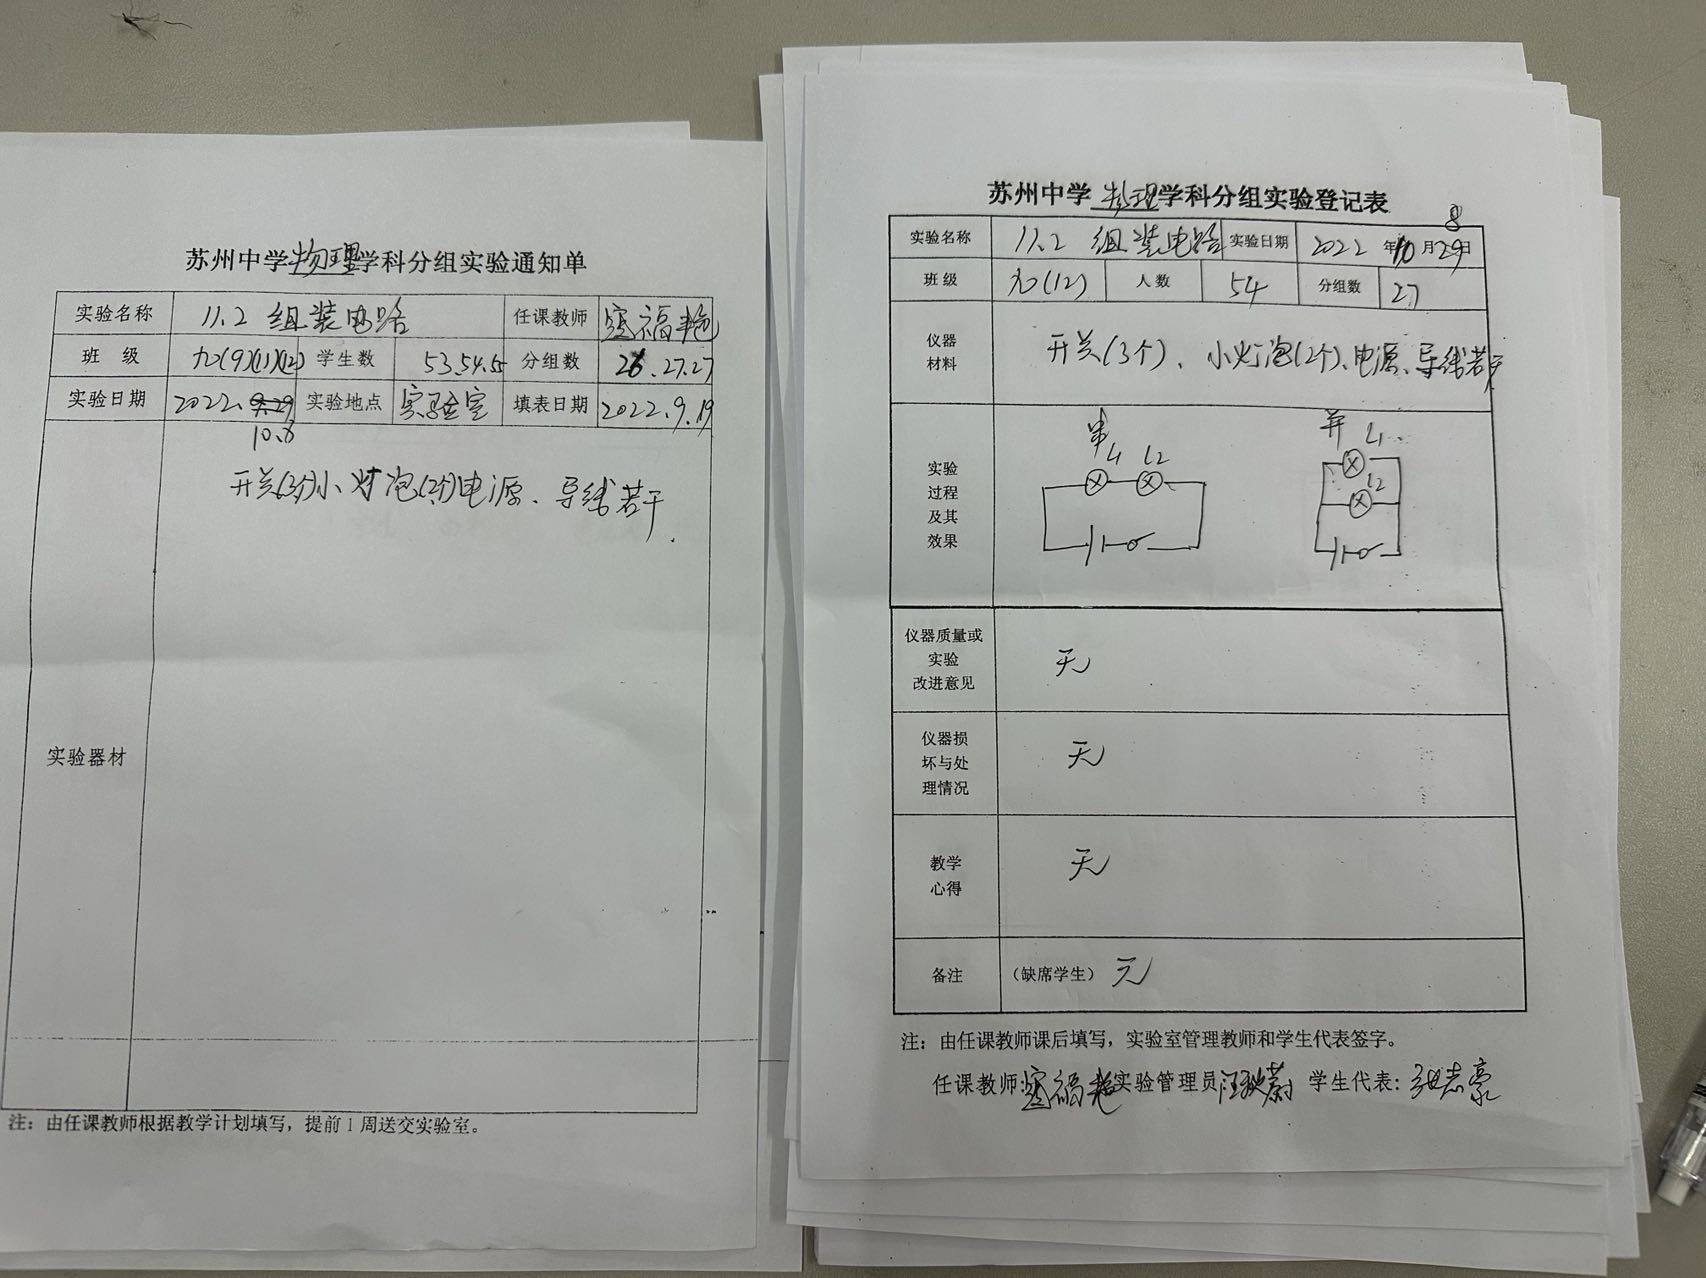 苏州中学物理学科分组实验通知单
实验名称 11.2 组装电路 任课教师 福艳
班 级 九(9)(11)(12) 学生数 53.54.55 分组数 26.27.27
实验日期 2022.9.29 实验地点 实验室 填表日期 2022.9.19
10.8
开关(3个)小灯泡(2个)电源、导线若干.
实验器材
注：由任课教师根据教学计划填写，提前1周送交实验室。
苏州中学物理学科分组实验登记表
8
实验名称 11.2 组装电路 实验日期 2022年10月29日
班级 九(12) 人数 54 分组数 27
仪器
材料
开关(3个)、小灯泡(2个)、电源、导线若干
实验
过程
及其
效果
串 L1 L2
并 L1 L2
仪器质量或
实验
改进意见
无
仪器损
坏与处
理情况
无
教学
心得
无
备注 (缺席学生) 无
注：由任课教师课后填写，实验室管理教师和学生代表签字。
任课教师:福艳 实验管理员 汪 学生代表: 张志豪